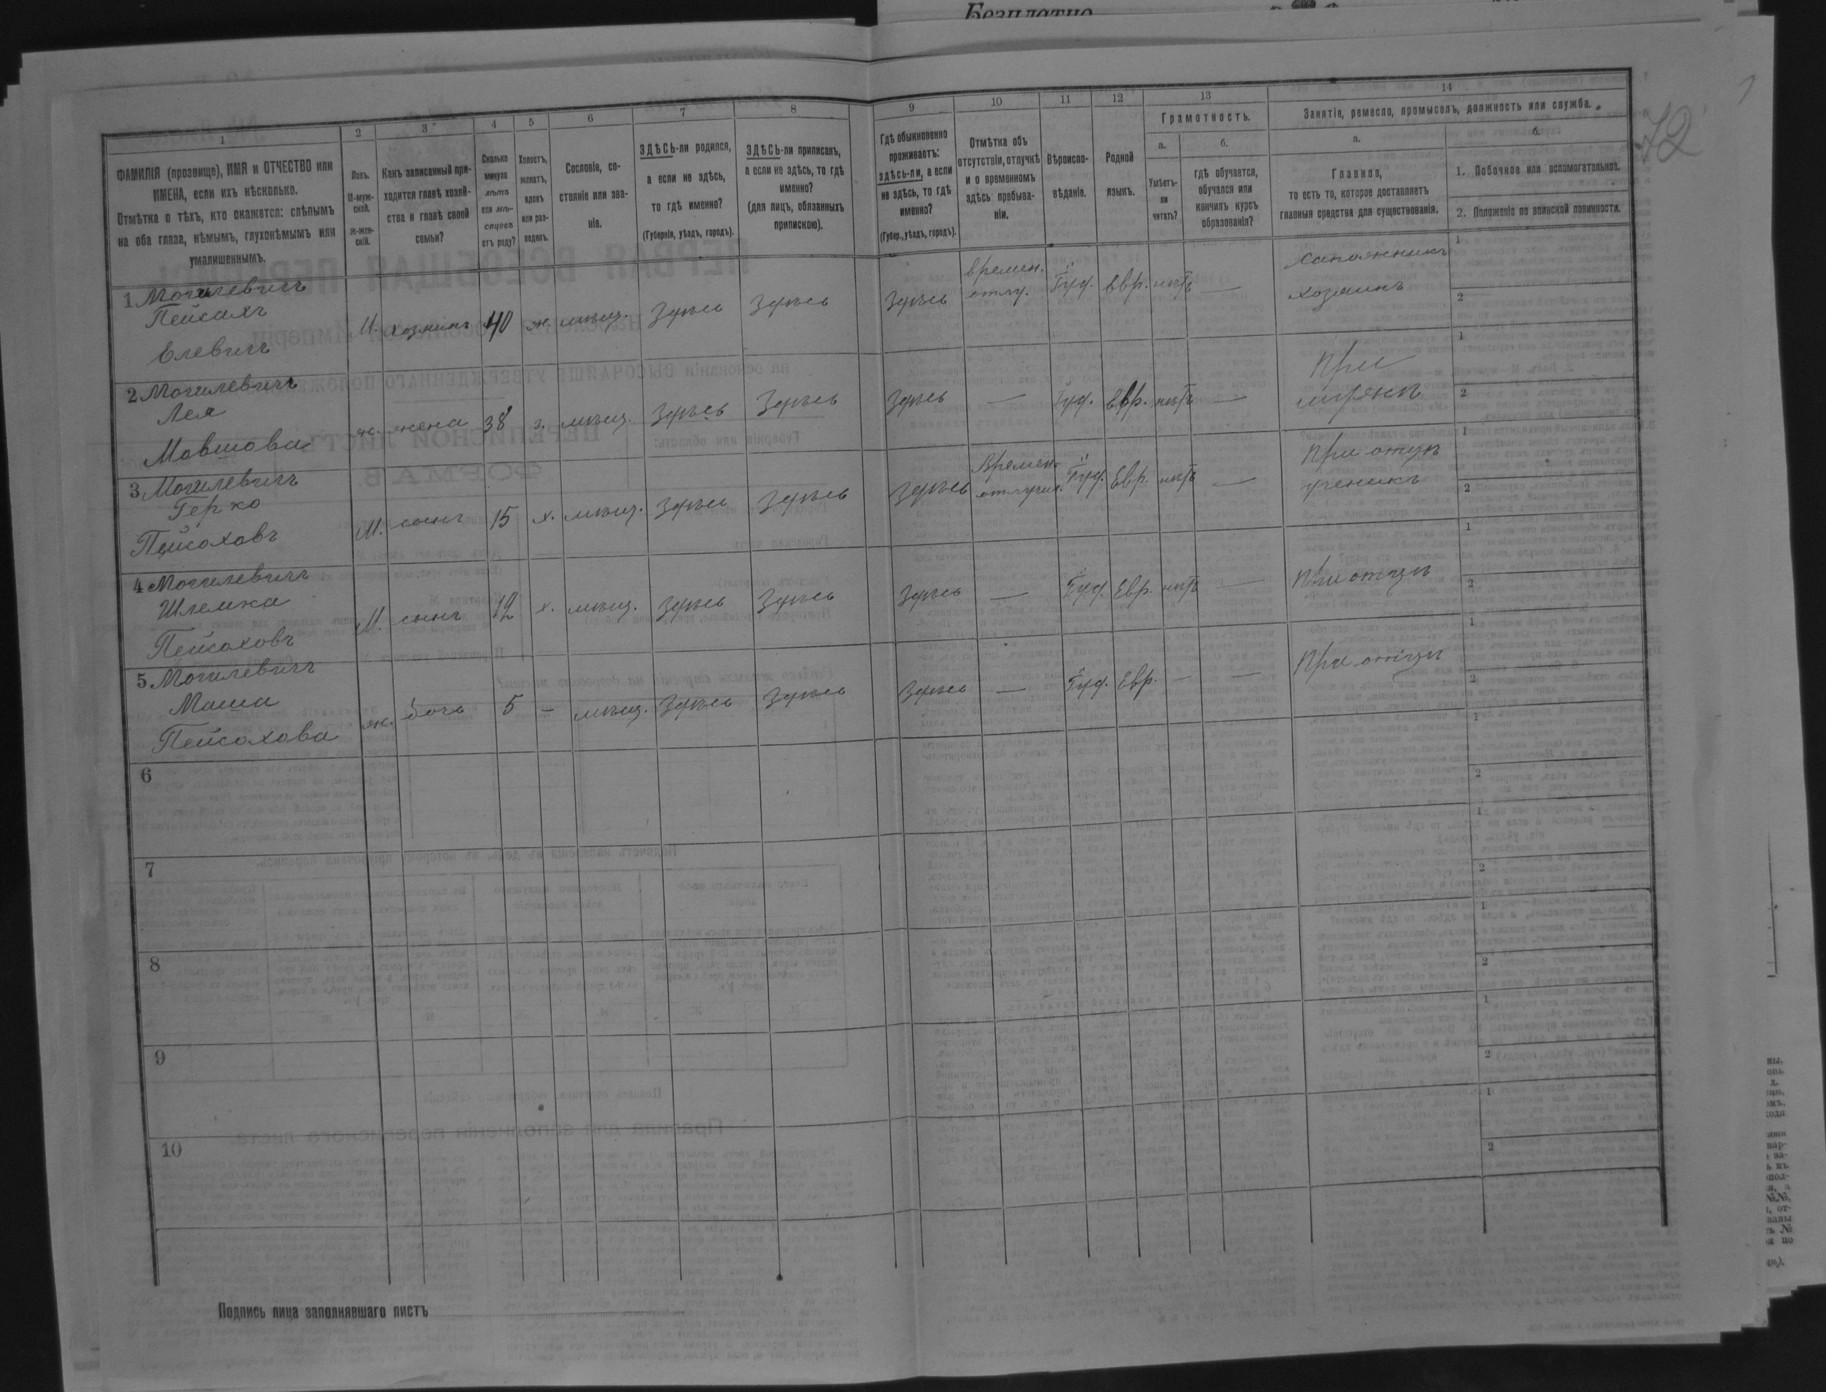 Безплатно
72
1
2
3
4
5
6
7
8
9
10
11
12
13
14
ФАМИЛІЯ (прозвище), ИМЯ и ОТЧЕСТВО или
ИМЕНА, если ихъ нѣсколько.
Отмѣтка о тѣхъ, кто окажется: слѣпымъ
на оба глаза, нѣмымъ, глухонѣмымъ или
умалишеннымъ.
Полъ.
М-муж-
ской.
Ж-жен-
скій.
Какъ записанный при-
ходится главѣ хозяй-
ства и главѣ своей
семьи?
Сколько
минуло
лѣтъ
или мѣ-
сяцевъ
отъ роду?
Холостъ,
женатъ,
вдовъ
или раз-
веденъ.
Сословіе, со-
стояніе или зва-
ніе.
ЗДѢСЬ-ли родился,
а если не здѣсь,
то гдѣ именно?
(Губернія, уѣздъ, городъ).
ЗДѢСЬ-ли приписанъ,
а если не здѣсь, то гдѣ
именно?
(для лицъ, обязанныхъ
припискою).
Гдѣ обыкновенно
проживаетъ:
здѣсь-ли, а если
не здѣсь, то гдѣ
именно?
(Губер., уѣздъ, городъ).
Отмѣтка объ
отсутствіи, отлучкѣ
и о временномъ
здѣсь пребыва-
ніи.
Вѣроиспо-
вѣданіе.
Родной
языкъ.
Грамотность.
а.
Умѣетъ-
ли
читать?
б.
гдѣ обучается,
обучался или
кончилъ курсъ
образованія?
Занятіе, ремесло, промыселъ, должность или служба.
а.
Главное,
то есть то, которое доставляетъ
главныя средства для существованія.
б.
1. Побочное или вспомогательное.
2. Положеніе по воинской повинности.
1 Могилевичъ
Пейсахъ
Елевичъ
М. хозяинъ 40 ж. мѣщ. Здѣсь Здѣсь Здѣсь
времен.
отлу.
Іуд. Евр. нѣтъ —
сапожникъ
хозяинъ
1
2
2 Могилевичъ
Лея
Мовшова
ж. жена 38 з. мѣщ. Здѣсь Здѣсь Здѣсь — Іуд. Евр. нѣтъ —
при
мужѣ
1
2
3 Могилевичъ
Герко
Пейсаховъ
М. сынъ 15 х. мѣщ. Здѣсь Здѣсь Здѣсь
Времен.
отлучил.
Іуд. Евр. нѣтъ —
при отцѣ
ученикъ
1
2
4 Могилевичъ
Шлемка
Пейсаховъ
М. сынъ 12 х. мѣщ. Здѣсь Здѣсь Здѣсь — Іуд. Евр. нѣтъ — при отцѣ
1
2
5 Могилевичъ
Маша
Пейсахова
ж. дочь 5 — мѣщ. Здѣсь Здѣсь Здѣсь — Іуд. Евр. — — при отцѣ
1
2
6
1
2
7
1
2
8
1
2
9
1
2
10
1
2
Подпись лица заполнявшаго листъ